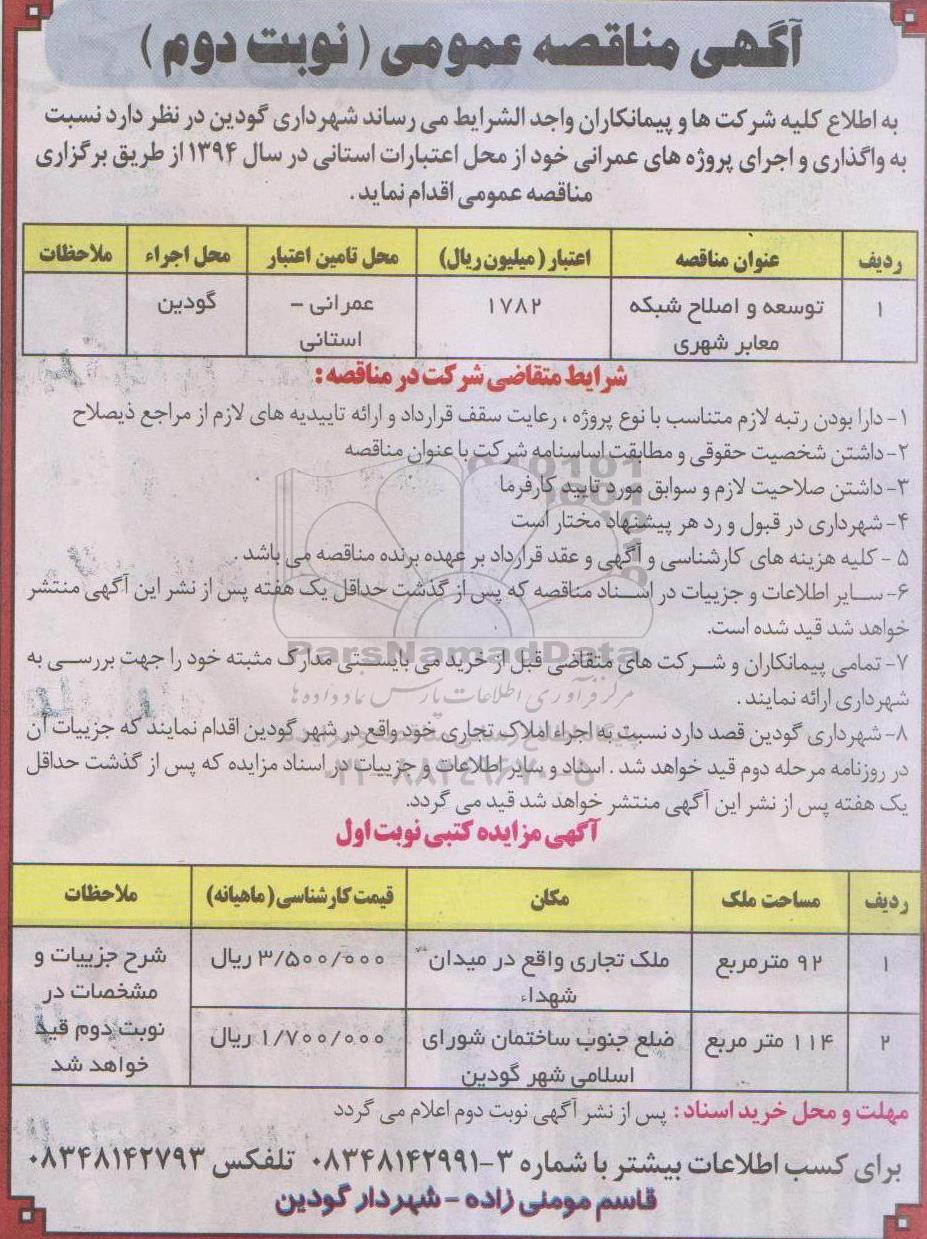 آگهی مناقصه عمومی ( نوبت دوم )
به اطلاع کلیه شرکت ها و پیمانکاران واجد الشرایط می رساند شهرداری گودین در نظر دارد نسبت
به واگذاری و اجرای پروژه های عمرانی خود از محل اعتبارات استانی در سال ۱۳۹۴ از طریق برگزاری
مناقصه عمومی اقدام نماید .
ردیف عنوان مناقصه اعتبار ( میلیون ریال) محل تامین اعتبار محل اجراء ملاحظات
۱ توسعه و اصلاح شبکه ۱۷۸۲ عمرانی – گودین
معابر شهری استانی
شرایط متقاضی شرکت در مناقصه :
۱- دارا بودن رتبه لازم متناسب با نوع پروژه ، رعایت سقف قرارداد و ارائه تاییدیه های لازم از مراجع ذیصلاح
۲- داشتن شخصیت حقوقی و مطابقت اساسنامه شرکت با عنوان مناقصه
۳- داشتن صلاحیت لازم و سوابق مورد تایید کارفرما
۴- شهرداری در قبول و رد هر پیشنهاد مختار است
۵ - کلیه هزینه های کارشناسی و آگهی و عقد قرارداد بر عهده برنده مناقصه می باشد .
۶- سایر اطلاعات و جزییات در اسناد مناقصه که پس از گذشت حداقل یک هفته پس از نشر این آگهی منتشر
خواهد شد قید شده است.
ParsNamadData
۷- تمامی پیمانکاران و شرکت های متقاضی قبل از خرید می بایستی مدارک مثبته خود را جهت بررسی به
مرکز فرآوری اطلاعات پارس نماد داده ها
شهرداری ارائه نمایند .
۸- شهرداری گودین قصد دارد نسبت به اجراء املاک تجاری خود واقع در شهر گودین اقدام نمایند که جزییات آن
در روزنامه مرحله دوم قید خواهد شد . اسناد و سایر اطلاعات و جزییات در اسناد مزایده که پس از گذشت حداقل
۰۲۱-۸۸۳۴۹۶۷۰-۵
یک هفته پس از نشر این آگهی منتشر خواهد شد قید می گردد.
آگهی مزایده کتبی نوبت اول
ردیف مساحت ملک مکان قیمت کارشناسی ( ماهیانه) ملاحظات
۱ ۹۲ مترمربع ملک تجاری واقع در میدان ۳/۵۰۰/۰۰۰ ریال شرح جزییات و
شهداء مشخصات در
۲ ۱۱۴ متر مربع ضلع جنوب ساختمان شورای ۱/۷۰۰/۰۰۰ ریال نوبت دوم قید
اسلامی شهر گودین خواهد شد
مهلت و محل خرید اسناد : پس از نشر آگهی نوبت دوم اعلام می گردد
برای کسب اطلاعات بیشتر با شماره ۳-۰۸۳۴۸۱۴۲۹۹۱ تلفکس ۰۸۳۴۸۱۴۲۷۹۳
قاسم مومنی زاده – شهردار گودین